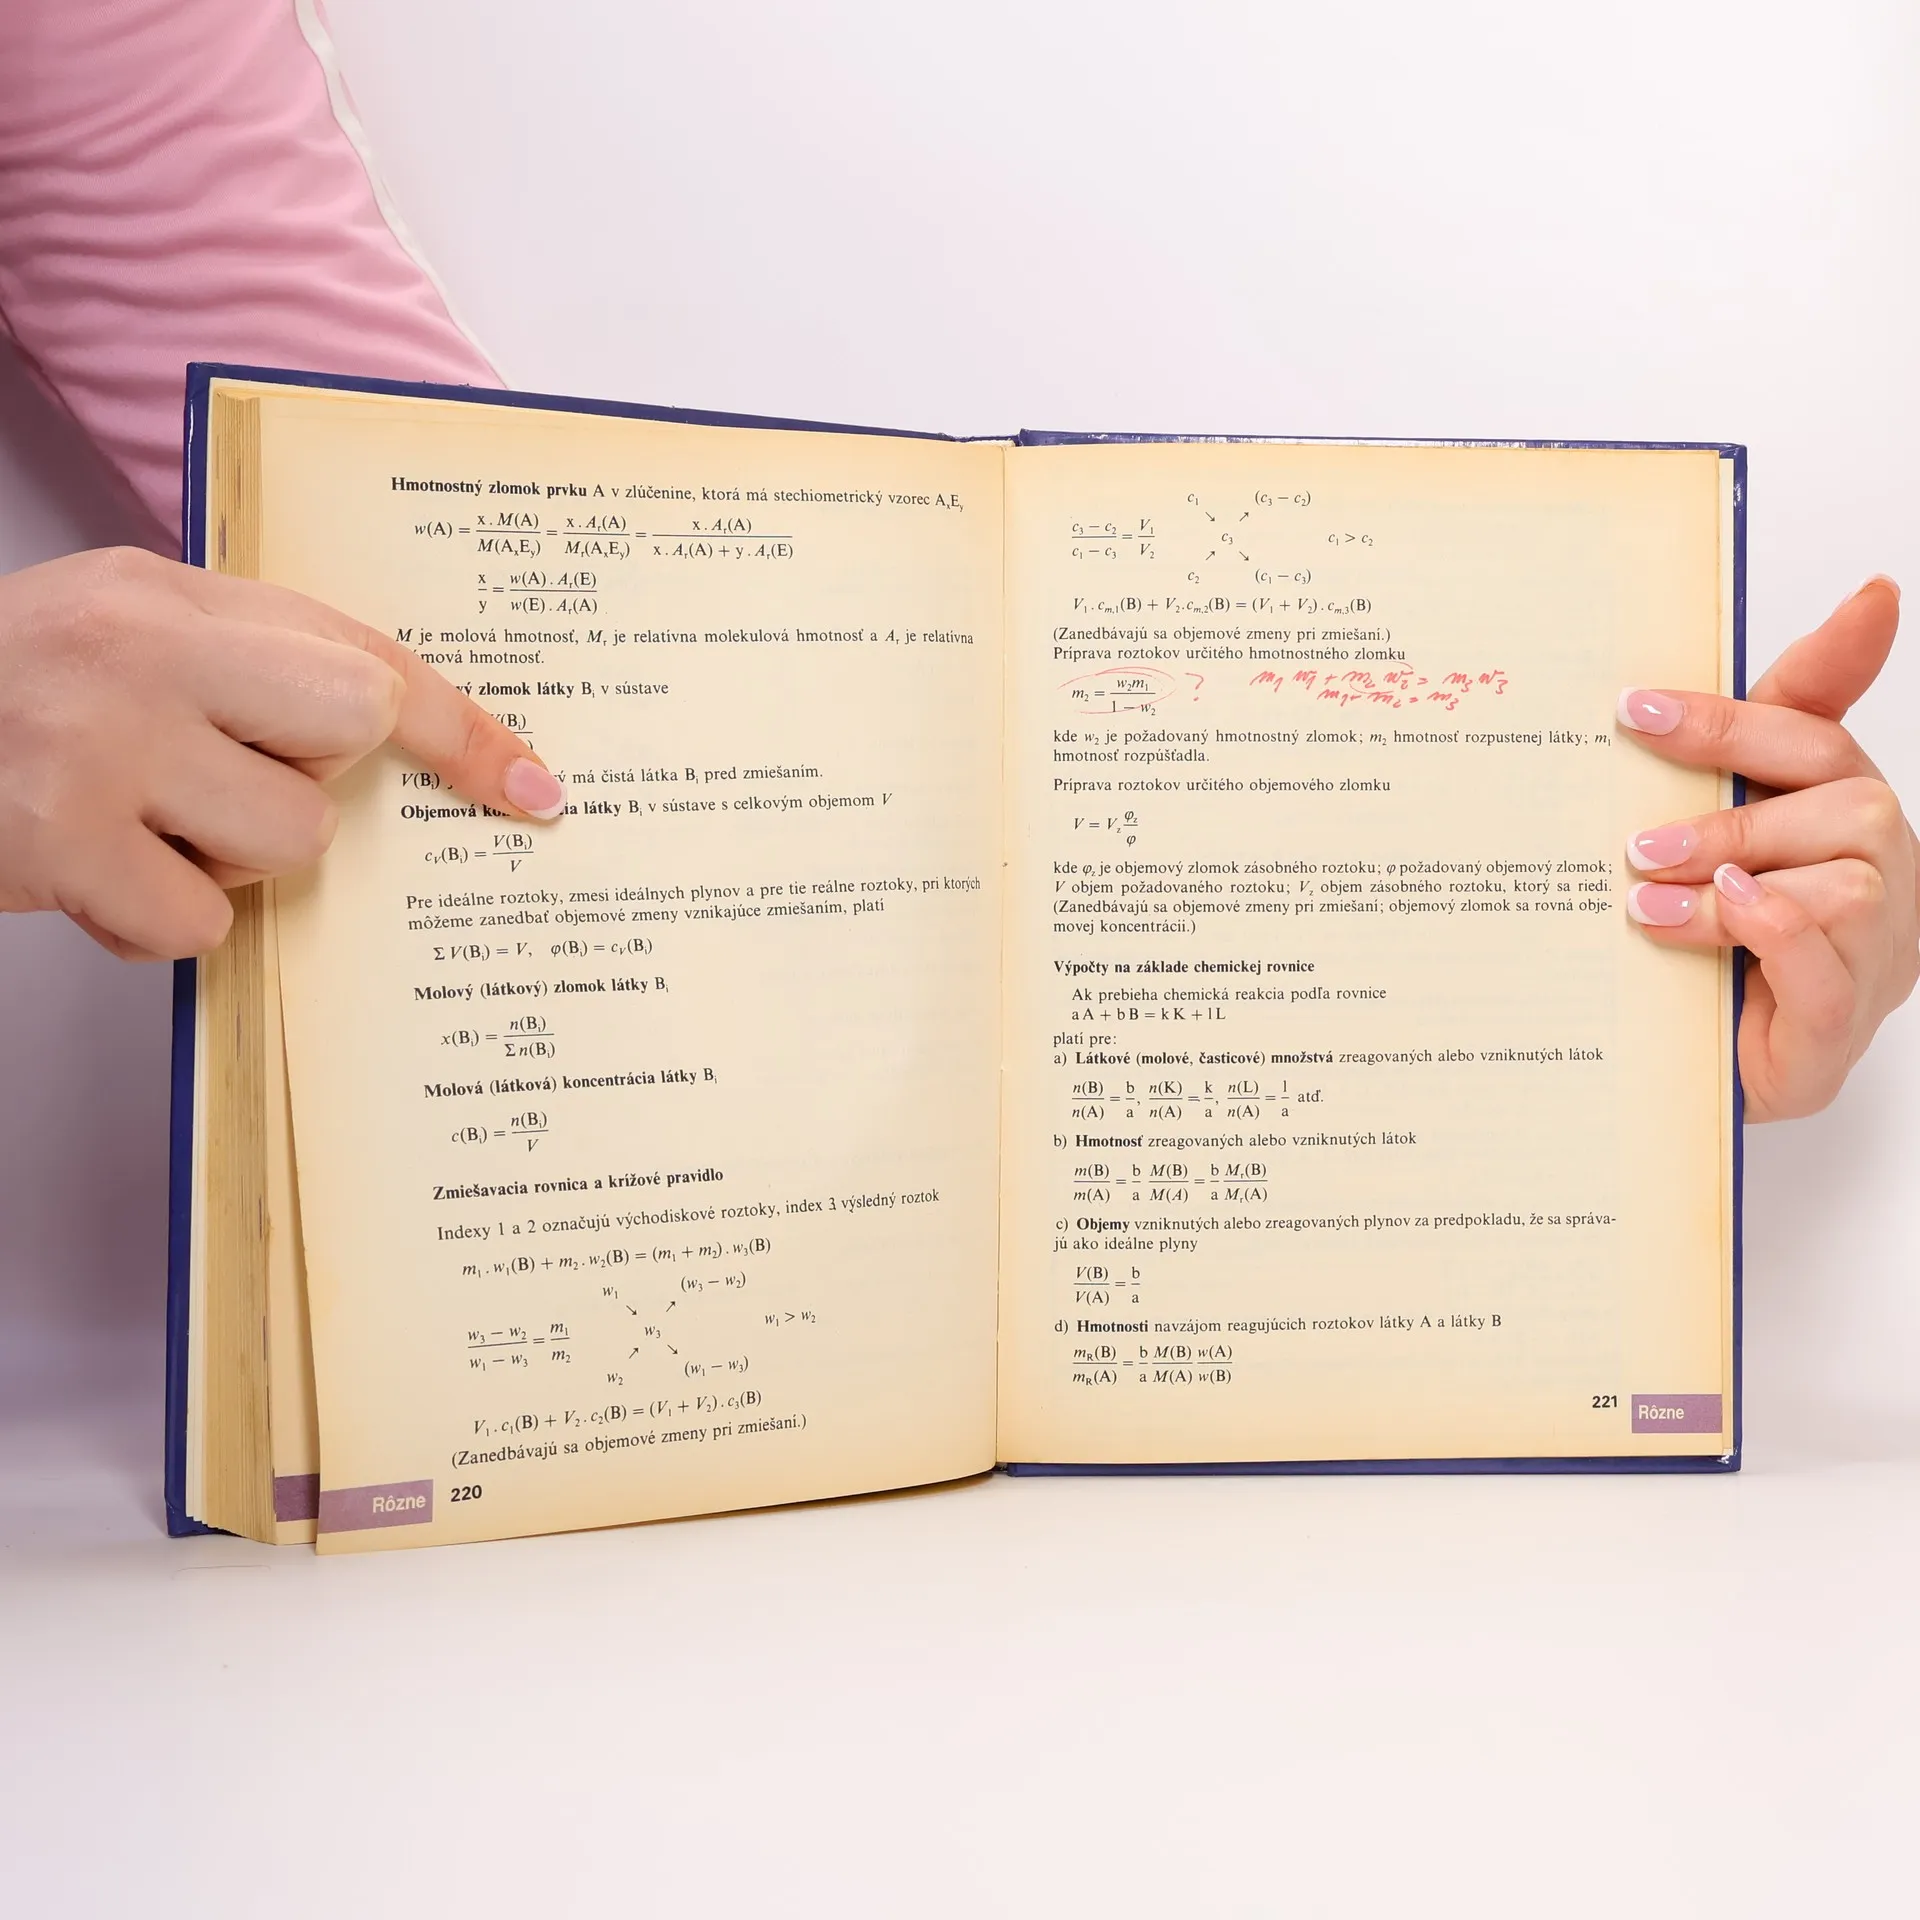 Hmotnostný zlomok prvku A v zlúčenine, ktorá má stechiometrický vzorec AₓEᵧ
w(A) = x . M(A) / M(AₓEᵧ) = x . Aᵣ(A) / Mᵣ(AₓEᵧ) = x . Aᵣ(A) / x . Aᵣ(A) + y . Aᵣ(E)
x / y = w(A) . Aᵣ(E) / w(E) . Aᵣ(A)
M je molová hmotnosť, Mᵣ je relatívna molekulová hmotnosť a Aᵣ je relatívna
mová hmotnosť.
zlomok látky Bᵢ v sústave
V(Bᵢ) má čistá látka Bᵢ pred zmiešaním.
Objemová látky Bᵢ v sústave s celkovým objemom V
c_V(Bᵢ) = V(Bᵢ) / V
Pre ideálne roztoky, zmesi ideálnych plynov a pre tie reálne roztoky, pri ktorých
môžeme zanedbať objemové zmeny vznikajúce zmiešaním, platí
Σ V(Bᵢ) = V, φ(Bᵢ) = c_V(Bᵢ)
Molový (látkový) zlomok látky Bᵢ
x(Bᵢ) = n(Bᵢ) / Σ n(Bᵢ)
Molová (látková) koncentrácia látky Bᵢ
c(Bᵢ) = n(Bᵢ) / V
Zmiešavacia rovnica a krížové pravidlo
Indexy 1 a 2 označujú východiskové roztoky, index 3 výsledný roztok
m₁ . w₁(B) + m₂ . w₂(B) = (m₁ + m₂) . w₃(B)
w₁ (w₃ − w₂)
↘ ↗
w₃ − w₂ / w₁ − w₃ = m₁ / m₂ w₃ w₁ > w₂
↗ ↘
w₂ (w₁ − w₃)
V₁ . c₁(B) + V₂ . c₂(B) = (V₁ + V₂) . c₃(B)
(Zanedbávajú sa objemové zmeny pri zmiešaní.)
Rôzne 220
c₁ (c₃ − c₂)
↘ ↗
c₃ − c₂ / c₁ − c₃ = V₁ / V₂ c₃ c₁ > c₂
↗ ↘
c₂ (c₁ − c₃)
V₁ . c_m,1(B) + V₂ . c_m,2(B) = (V₁ + V₂) . c_m,3(B)
(Zanedbávajú sa objemové zmeny pri zmiešaní.)
Príprava roztokov určitého hmotnostného zlomku
m₂ = w₂m₁ / 1 − w₂ ? m₁ w₁ + m₂ w₂ = m₃ w₃
m₁ + m₂ = m₃
kde w₂ je požadovaný hmotnostný zlomok; m₂ hmotnosť rozpustenej látky; m₁
hmotnosť rozpúšťadla.
Príprava roztokov určitého objemového zlomku
V = V_z φ_z / φ
kde φ_z je objemový zlomok zásobného roztoku; φ požadovaný objemový zlomok;
V objem požadovaného roztoku; V_z objem zásobného roztoku, ktorý sa riedi.
(Zanedbávajú sa objemové zmeny pri zmiešaní; objemový zlomok sa rovná obje-
movej koncentrácii.)
Výpočty na základe chemickej rovnice
Ak prebieha chemická reakcia podľa rovnice
a A + b B = k K + l L
platí pre:
a) Látkové (molové, časticové) množstvá zreagovaných alebo vzniknutých látok
n(B) / n(A) = b / a, n(K) / n(A) = k / a, n(L) / n(A) = l / a atď.
b) Hmotnosť zreagovaných alebo vzniknutých látok
m(B) / m(A) = b / a M(B) / M(A) = b / a Mᵣ(B) / Mᵣ(A)
c) Objemy vzniknutých alebo zreagovaných plynov za predpokladu, že sa správa-
jú ako ideálne plyny
V(B) / V(A) = b / a
d) Hmotnosti navzájom reagujúcich roztokov látky A a látky B
m_R(B) / m_R(A) = b / a M(B) / M(A) w(A) / w(B)
221 Rôzne